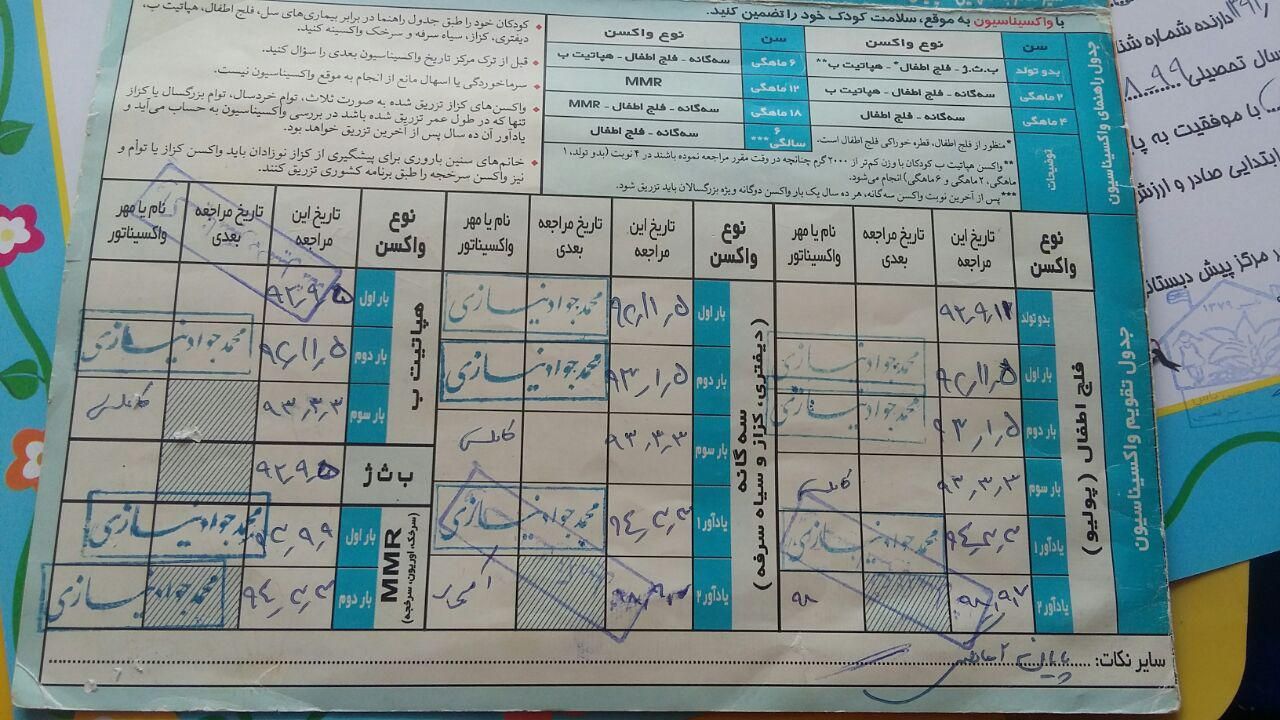 با واکسیناسیون به موقع، سلامت کودک خود را تضمین کنید.
جدول راهنمای واکسیناسیون
سن
نوع واکسن
سن
نوع واکسن
بدو تولد
ب.ث.ژ - فلج اطفال* - هپاتیت ب**
۶ ماهگی
سه‌گانه - فلج اطفال - هپاتیت ب
۲ ماهگی
سه‌گانه - فلج اطفال - هپاتیت ب
۱۲ ماهگی
MMR
۴ ماهگی
سه‌گانه - فلج اطفال
۱۸ ماهگی
سه‌گانه - فلج اطفال - MMR
توضیحات
*منظور از فلج اطفال، قطره خوراکی فلج اطفال است.
۶ سالگی***
سه‌گانه - فلج اطفال
**واکسن هپاتیت ب کودکان با وزن کم‌تر از ۲۰۰۰ گرم چنانچه در وقت مقرر مراجعه نموده باشند در ۴ نوبت (بدو تولد، ۱
ماهگی، ۲ ماهگی و ۶ ماهگی) انجام می‌شود.
***پس از آخرین نوبت واکسن سه‌گانه، هر ده سال یک بار واکسن دوگانه ویژه بزرگسالان باید تزریق شود.
کودکان خود را طبق جدول راهنما در برابر بیماری‌های سل، فلج اطفال، هپاتیت ب،
دیفتری، کزاز، سیاه سرفه و سرخک واکسینه کنید.
قبل از ترک مرکز تاریخ واکسیناسیون بعدی را سؤال کنید.
سرماخوردگی یا اسهال مانع از انجام به موقع واکسیناسیون نیست.
واکسن‌های کزاز تزریق شده به صورت ثلاث، توام خردسال، توام بزرگسال یا کزاز
تنها که در طول عمر تزریق شده باشد در بررسی واکسیناسیون به حساب می‌آید و
یادآور آن ده سال پس از آخرین تزریق خواهد بود.
خانم‌های سنین باروری برای پیشگیری از کزاز نوزادان باید واکسن کزاز یا توأم و
نیز واکسن سرخجه را طبق برنامه کشوری تزریق کنند.
جدول تقویم واکسیناسیون
نوع واکسن
تاریخ این مراجعه
تاریخ مراجعه بعدی
نام یا مهر واکسیناتور
فلج اطفال (پولیو)
بدو تولد
بار اول
۹۲,۱۱,۵
محمد جواد نیازی
بار دوم
۹۳,۱,۵
محمد جواد نیازی
بار سوم
۹۳,۳,۳
یادآور ۱
محمد جواد نیازی
یادآور ۲
نوع واکسن
تاریخ این مراجعه
تاریخ مراجعه بعدی
نام یا مهر واکسیناتور
سه گانه
(دیفتری، کزاز و سیاه سرفه)
بار اول
۹۲,۱۱,۵
محمد جواد نیازی
بار دوم
۹۳,۱,۵
محمد جواد نیازی
بار سوم
۹۳,۳,۳
یادآور ۱
محمد جواد نیازی
یادآور ۲
نوع واکسن
تاریخ این مراجعه
تاریخ مراجعه بعدی
نام یا مهر واکسیناتور
هپاتیت ب
بار اول
بار دوم
۹۲,۱۱,۵
محمد جواد نیازی
بار سوم
۹۳,۳,۳
ب ث ژ
MMR
(سرخک، اوریون، سرخجه)
بار اول
محمد جواد نیازی
بار دوم
محمد جواد نیازی
سایر نکات:
دارنده شماره شنا
سال تحصیلی
با موفقیت به پا
ابتدایی صادر و ارزش
مرکز پیش دبستانی